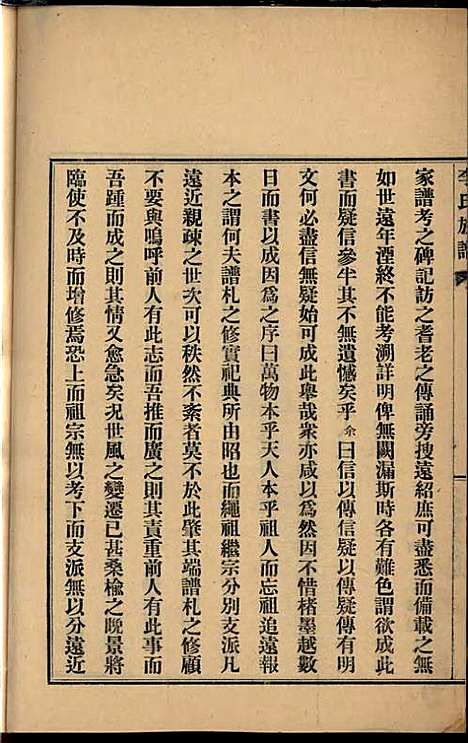 李氏族譜
家譜考之碑記訪之耆老之傳誦旁搜遠紹庶可盡悉而備載之無
如世遠年湮終不能考溯詳明俾無闕漏斯時各有難色謂欲成此
書而疑信參半其不無遺憾矣乎余曰信以傳信疑以傳疑傳有明
文何必盡信無疑始可成此舉哉衆亦咸以爲然因不惜楮墨越數
日而書以成因爲之序曰萬物本乎天人本乎祖人而忘祖追遠報
本之謂何夫譜札之修實祀典所由昭也而繩祖繼宗分別支派凡
遠近親疎之世次可以秩然不紊者莫不於此肇其端譜札之修顧
不要與嗚呼前人有此志而吾推而廣之則其責重前人有此事而
吾踵而成之則其情又愈急矣況世風之變遷已甚桑榆之晚景將
臨使不及時而增修焉恐上而祖宗無以考下而支派無以分遠近